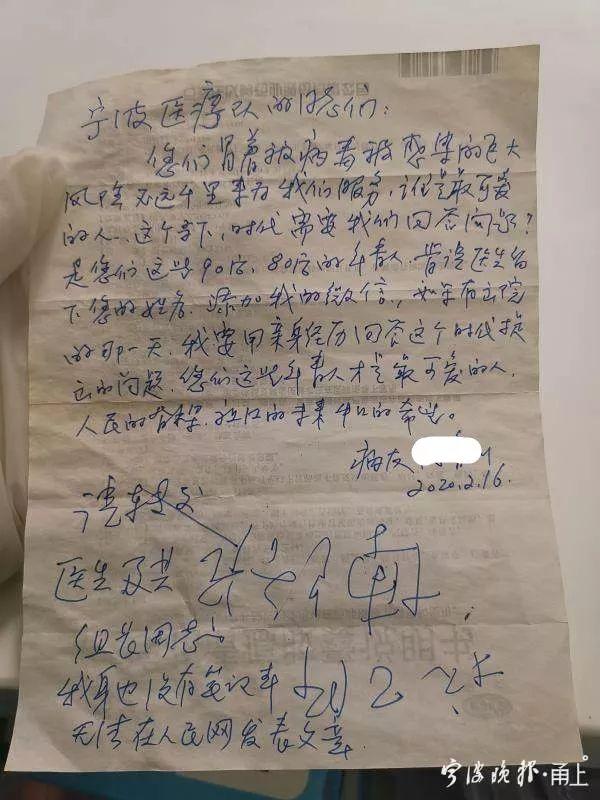 宁波医疗队的同志们：
您们冒着被病毒被感染的巨大
风险不远千里来为我们服务，谁是最可爱
的人、这个当下，时代需要我们回答问题？
是您们这些90后、80后的年青人，曾请医生留
下您的姓名，添加我的微信，如果有出院
的那一天，我要用亲身经历回答这个时代提
出的问题，您们这些年青人才是最可爱的人，
人民的脊梁，祖国的未来
病友
2020.2.16.
请转交
医生及
组长同志
我身也没有笔记本
无法在人民网发表文章
宁波晚报·甬上